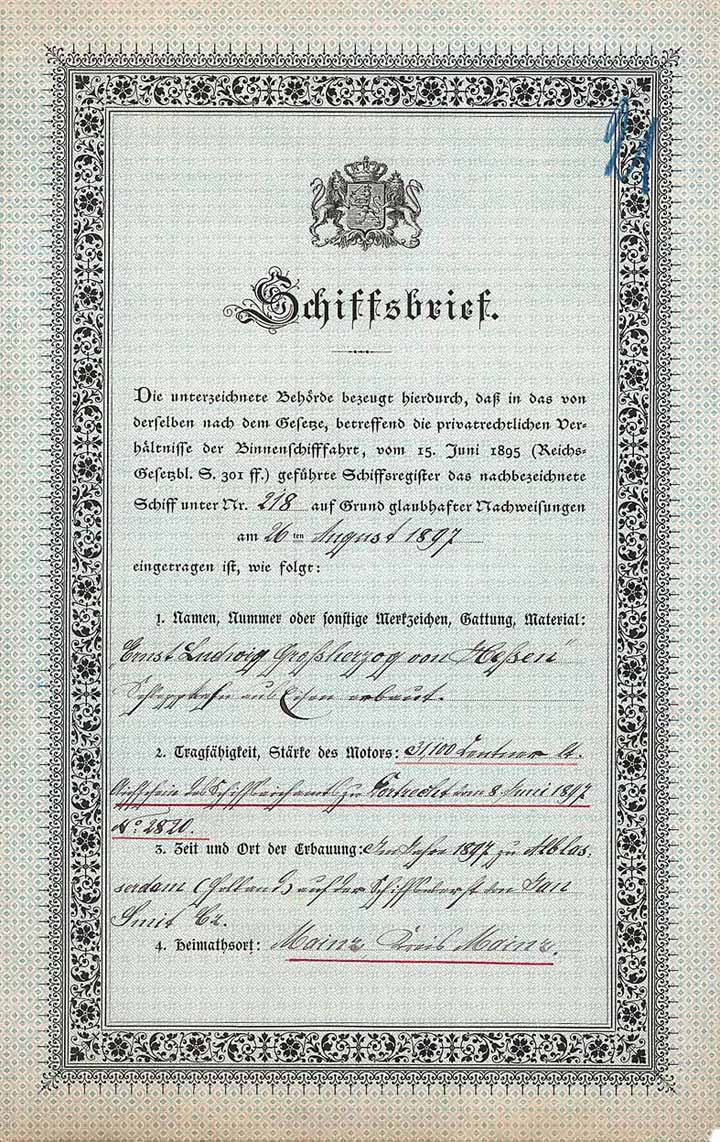 Schiffsbrief.
Die unterzeichnete Behörde bezeugt hierdurch, daß in das von
derselben nach dem Gesetze, betreffend die privatrechtlichen Ver-
hältnisse der Binnenschifffahrt, vom 15. Juni 1895 (Reichs-
Gesetzbl. S. 301 ff.) geführte Schiffsregister das nachbezeichnete
Schiff unter Nr. 218 auf Grund glaubhafter Nachweisungen
am 26ten August 1897
eingetragen ist, wie folgt:
1. Namen, Nummer oder sonstige Merkzeichen, Gattung, Material:
"Ernst Ludwig Großherzog von Heßen"
Schleppkahn aus Eisen erbaut.
2. Tragfähigkeit, Stärke des Motors: 31,100 Zentner lt.
Aichschein des zu Dortrecht vom 8. Juni 1897
No. 2820.
3. Zeit und Ort der Erbauung: Im Jahre 1897 zu Alblas-
serdam (Holland) auf der Schiffswerft von Jan
Smit Cz.
4. Heimathsort: Mainz, Kreis Mainz.